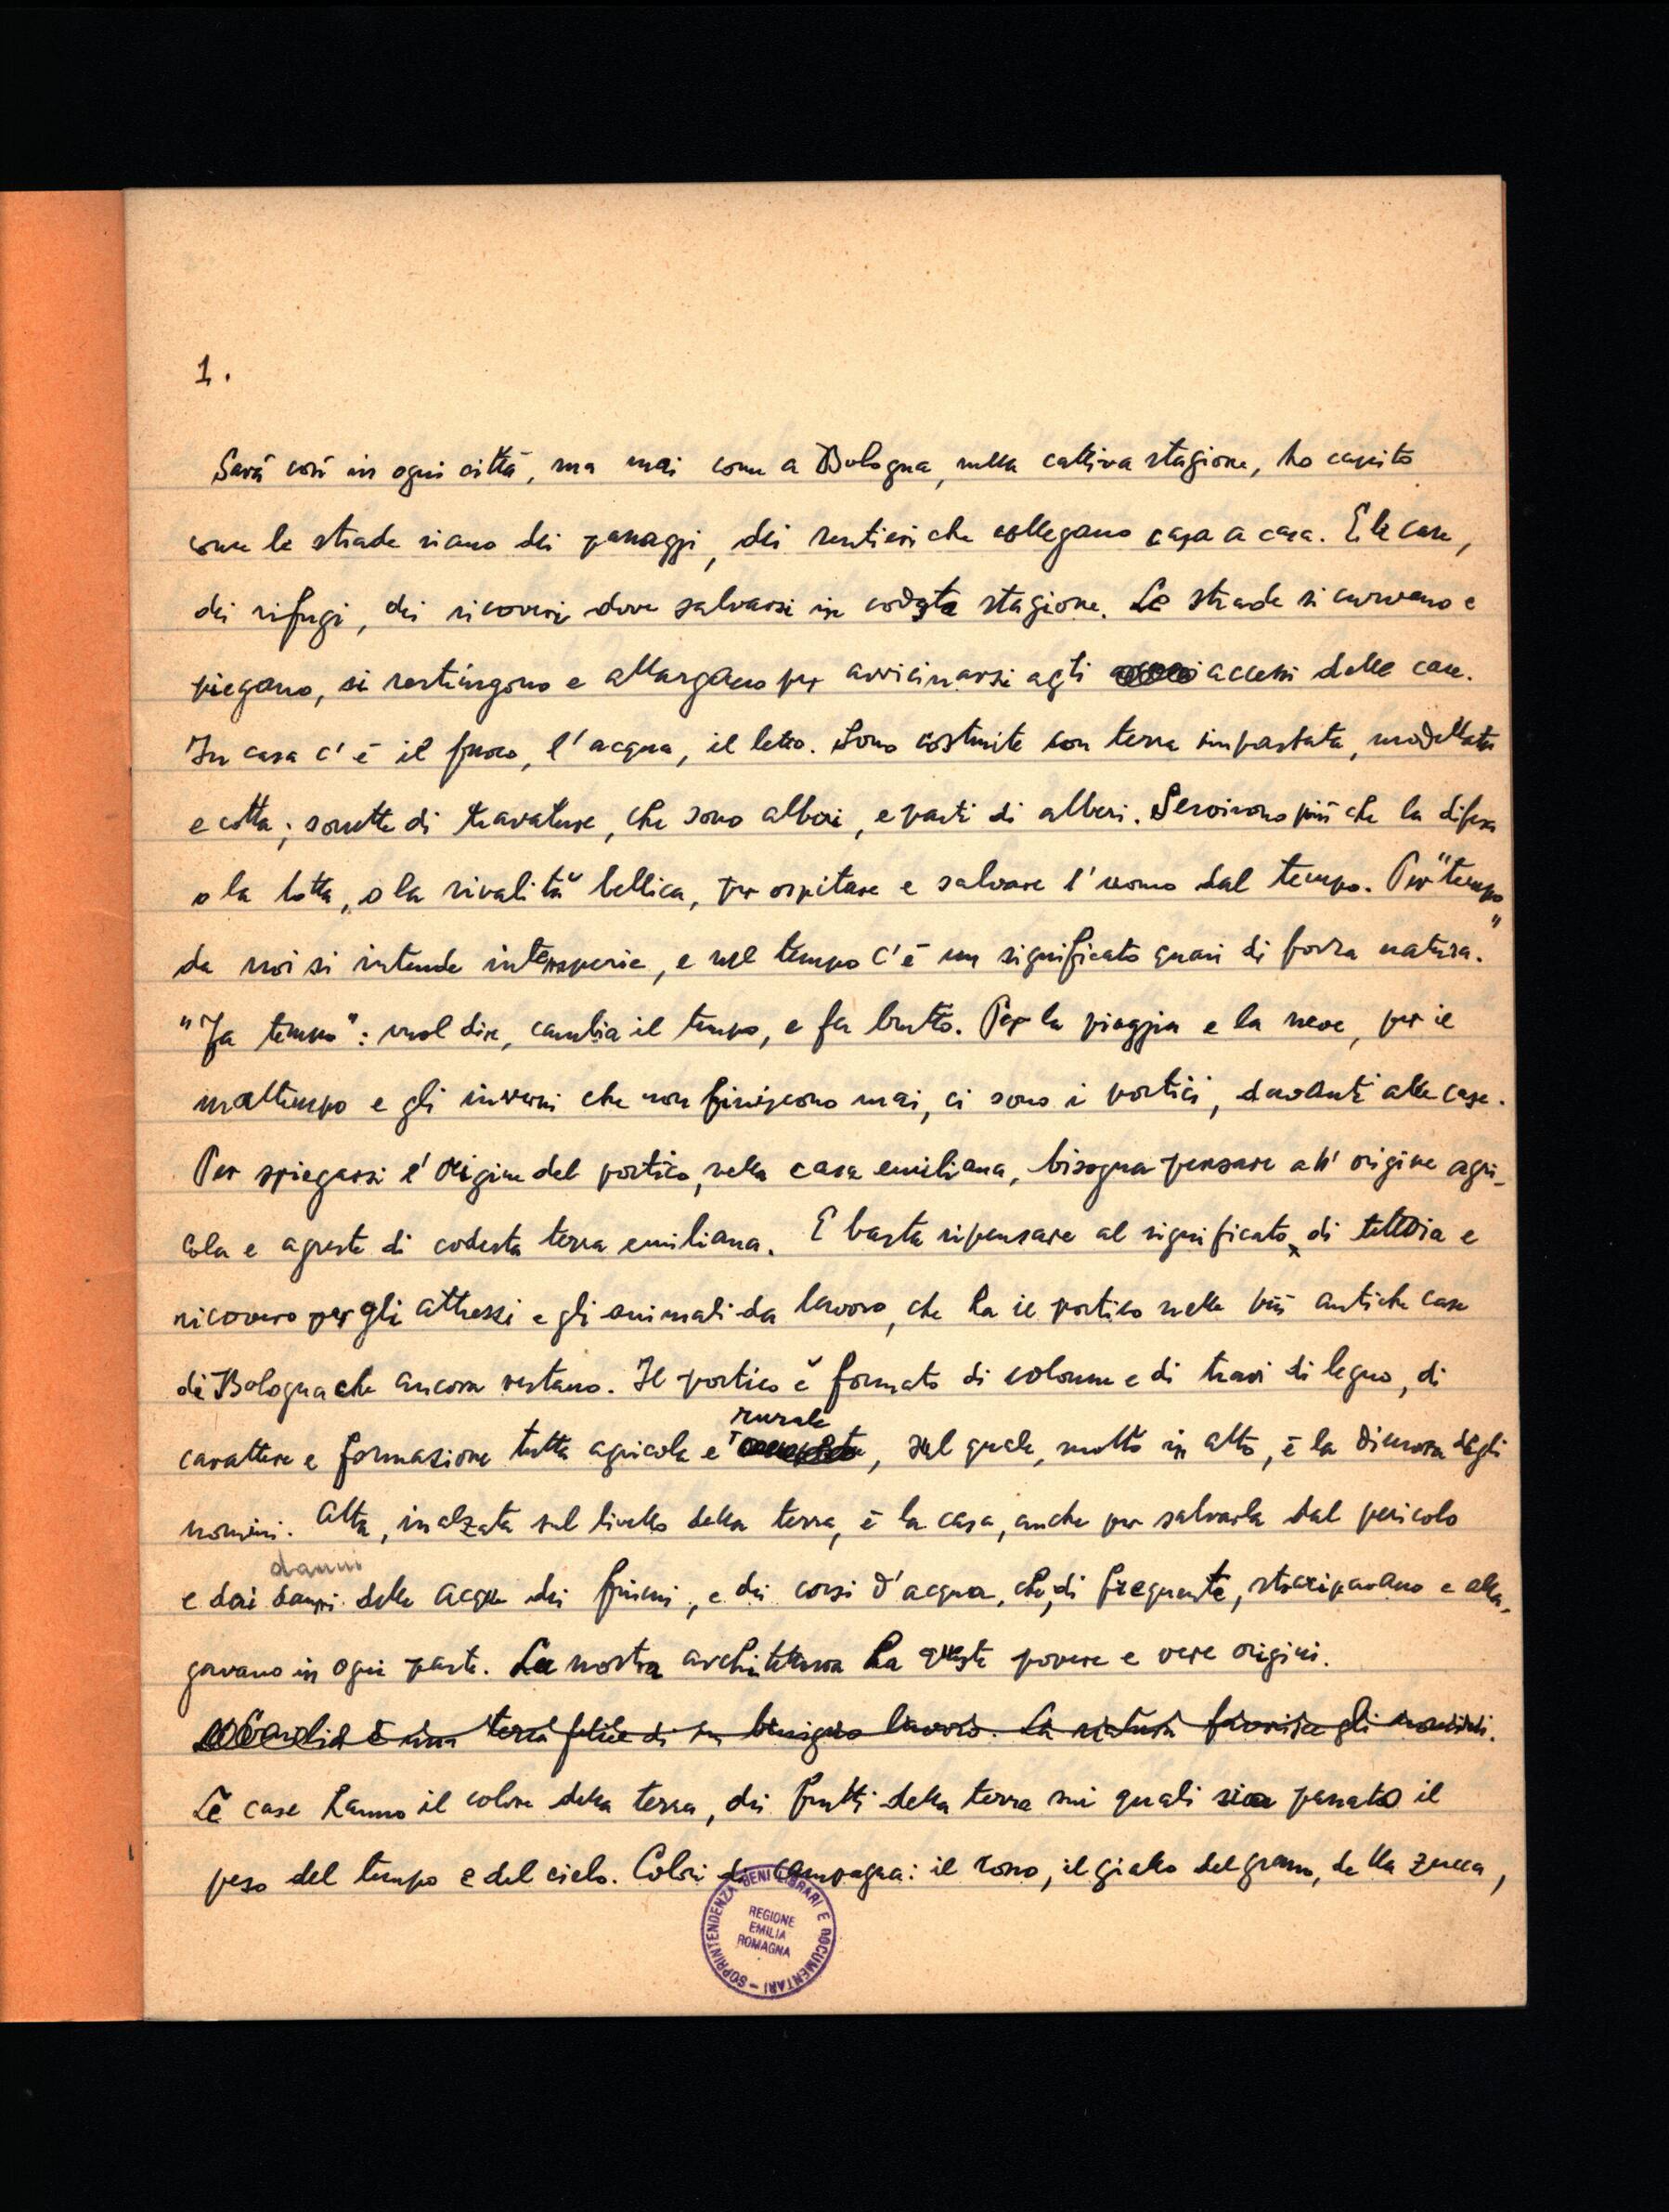 1.
Sarà così in ogni città, ma mai come a Bologna, nella cattiva stagione, ho capito
come le strade siano dei passaggi, dei sentieri che collegano casa a casa. E le case,
dei rifugi, dei ricoveri dove salvarsi in codesta stagione. Le strade si curvano e
piegano, si restringono e allargano per avvicinarsi agli accessi delle case.
In casa c'è il fuoco, l'acqua, il letto. Sono costruite con terra impastata, modellata
e cotta; sorrette di travature, che sono alberi, e parti di alberi. Servirono più che la difesa
o la lotta, o la rivalità bellica, per ospitare e salvare l'uomo dal tempo. Per "tempo"
da noi si intende intemperie, e nel tempo c'è un significato quasi di forza natura.
"Fa tempo": vuol dire, cambia il tempo, e fa brutto. Per la pioggia e la neve, per il
maltempo e gli inverni che non finiscono mai, ci sono i portici, davanti alle case.
Per spiegarsi l'origine del portico, nella casa emiliana, bisogna pensare all'origine agri-
cola e agreste di codesta terra emiliana. E basta ripensare al significato di tettoia e
ricovero per gli attrezzi e gli animali da lavoro, che ha il portico nelle più antiche case
di Bologna che ancora restano. Il portico è formato di colonne e di travi di legno, di
rurale
carattere e formazione tutta agricola e , sul quale, molto in alto, è la dimora degli
uomini. Alta, inalzata sul livello della terra, è la casa, anche per salvarla dal pericolo
danni
e dai danni delle acque dei fiumi, e dei corsi d'acqua, che, di frequente, straripavano e alla-
gavano in ogni parte. La nostra architettura ha queste povere e vere origini.
L'Emilia è una terra felice di un benigno lavoro. La natura favorisce gli uomini.
Le case hanno il colore della terra, dei frutti della terra sui quali sia passato il
peso del tempo e del cielo. Colori di campagna: il rosso, il giallo del grano, della zucca,
SOPRINTENDENZA BENI LIBRARI E DOCUMENTARI -
REGIONE
EMILIA
ROMAGNA